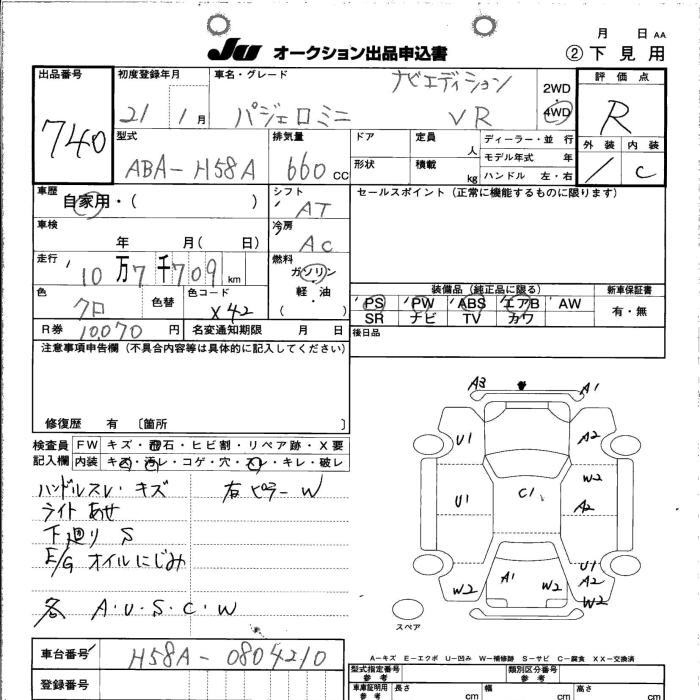 月 日 AA
JU オークション出品申込書 ② 下見用
出品番号 740
初度登録年月 21 1月
車名・グレード パジェロミニ ナビエディション VR
2WD
4WD
評価点 R
外装 内装
/ C
型式 ABA-H58A
排気量 660 CC
ドア 定員 人
形状 積載 kg
ディーラー・並行
モデル年式 年
ハンドル 左・右
車歴 自家用・( )
シフト AT
セールスポイント (正常に機能するものに限ります)
車検 年 月( 日)
冷房 AC
走行 10万7千709 km
燃料 ガソリン
軽・油
( )
色 クロ 色替 色コード X42
装備品 (純正品に限る) 新車保証書
PS PW ABS エアB AW 有・無
SR ナビ TV カワ
R券 10,070 円 名変通知期限 月 日
後日品
注意事項申告欄 (不具合内容等は具体的に記入してください)
修復歴 有 〔箇所 〕
検査員 FW キズ・飛石・ヒビ割・リペア跡・X要
記入欄 内装 キズ・汚レ・コゲ・穴・スレ・キレ・破レ
ハンドルスレ・キズ 右ピラーW
ライトあせ
下廻り S
E/G オイルにじみ
各 A・U・S・C・W
A3 A1
U1 A2
W2
U1 C1 A2
U1
A1 A2
W2 W2 W2
スペア
A-キズ E-エクボ U-凹み W-補修跡 S-サビ C-腐食 XX-交換済
車台番号 H58A-0804210
登録番号
型式指定番号 参考 類別区分番号 参考
車庫証明用 参考 長さ cm 幅 cm 高さ cm